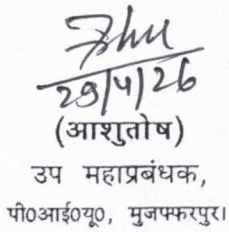 29/4/26
(आशुतोष)
उप महाप्रबंधक,
पी०आई०यू०, मुजफ्फरपुर।